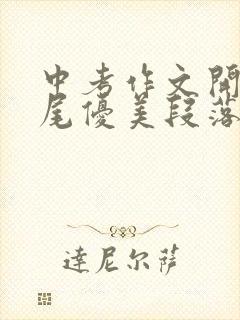 中考作文開
尾優美段落
達尼尔薩